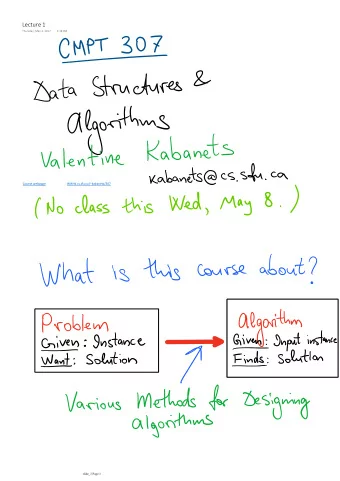 Lecture 1
CMPT 307
Data Structures &
Algorithms
Valentine Kabanets
kabanets@cs.sfu.ca
(No class this Wed, May 8.)
What is this course about?
Problem
Given: Instance
Want: Solution
Algorithm
Given: Input instance
Finds: Solution
Various Methods for Designing
algorithms